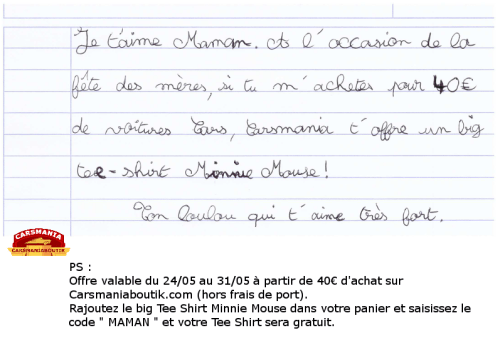 Je t'aime Maman. A l'occasion de la
fête des mères, si tu m'achetes pour 40€
de voitures Cars, Carsmania t'offre un big
tee-shirt Minnie Mouse!
Ton loulou qui t'aime très fort.
CARSMANIA
CARSMANIABOUTIK
PS :
Offre valable du 24/05 au 31/05 à partir de 40€ d'achat sur
Carsmaniaboutik.com (hors frais de port).
Rajoutez le big Tee Shirt Minnie Mouse dans votre panier et saisissez le
code " MAMAN " et votre Tee Shirt sera gratuit.